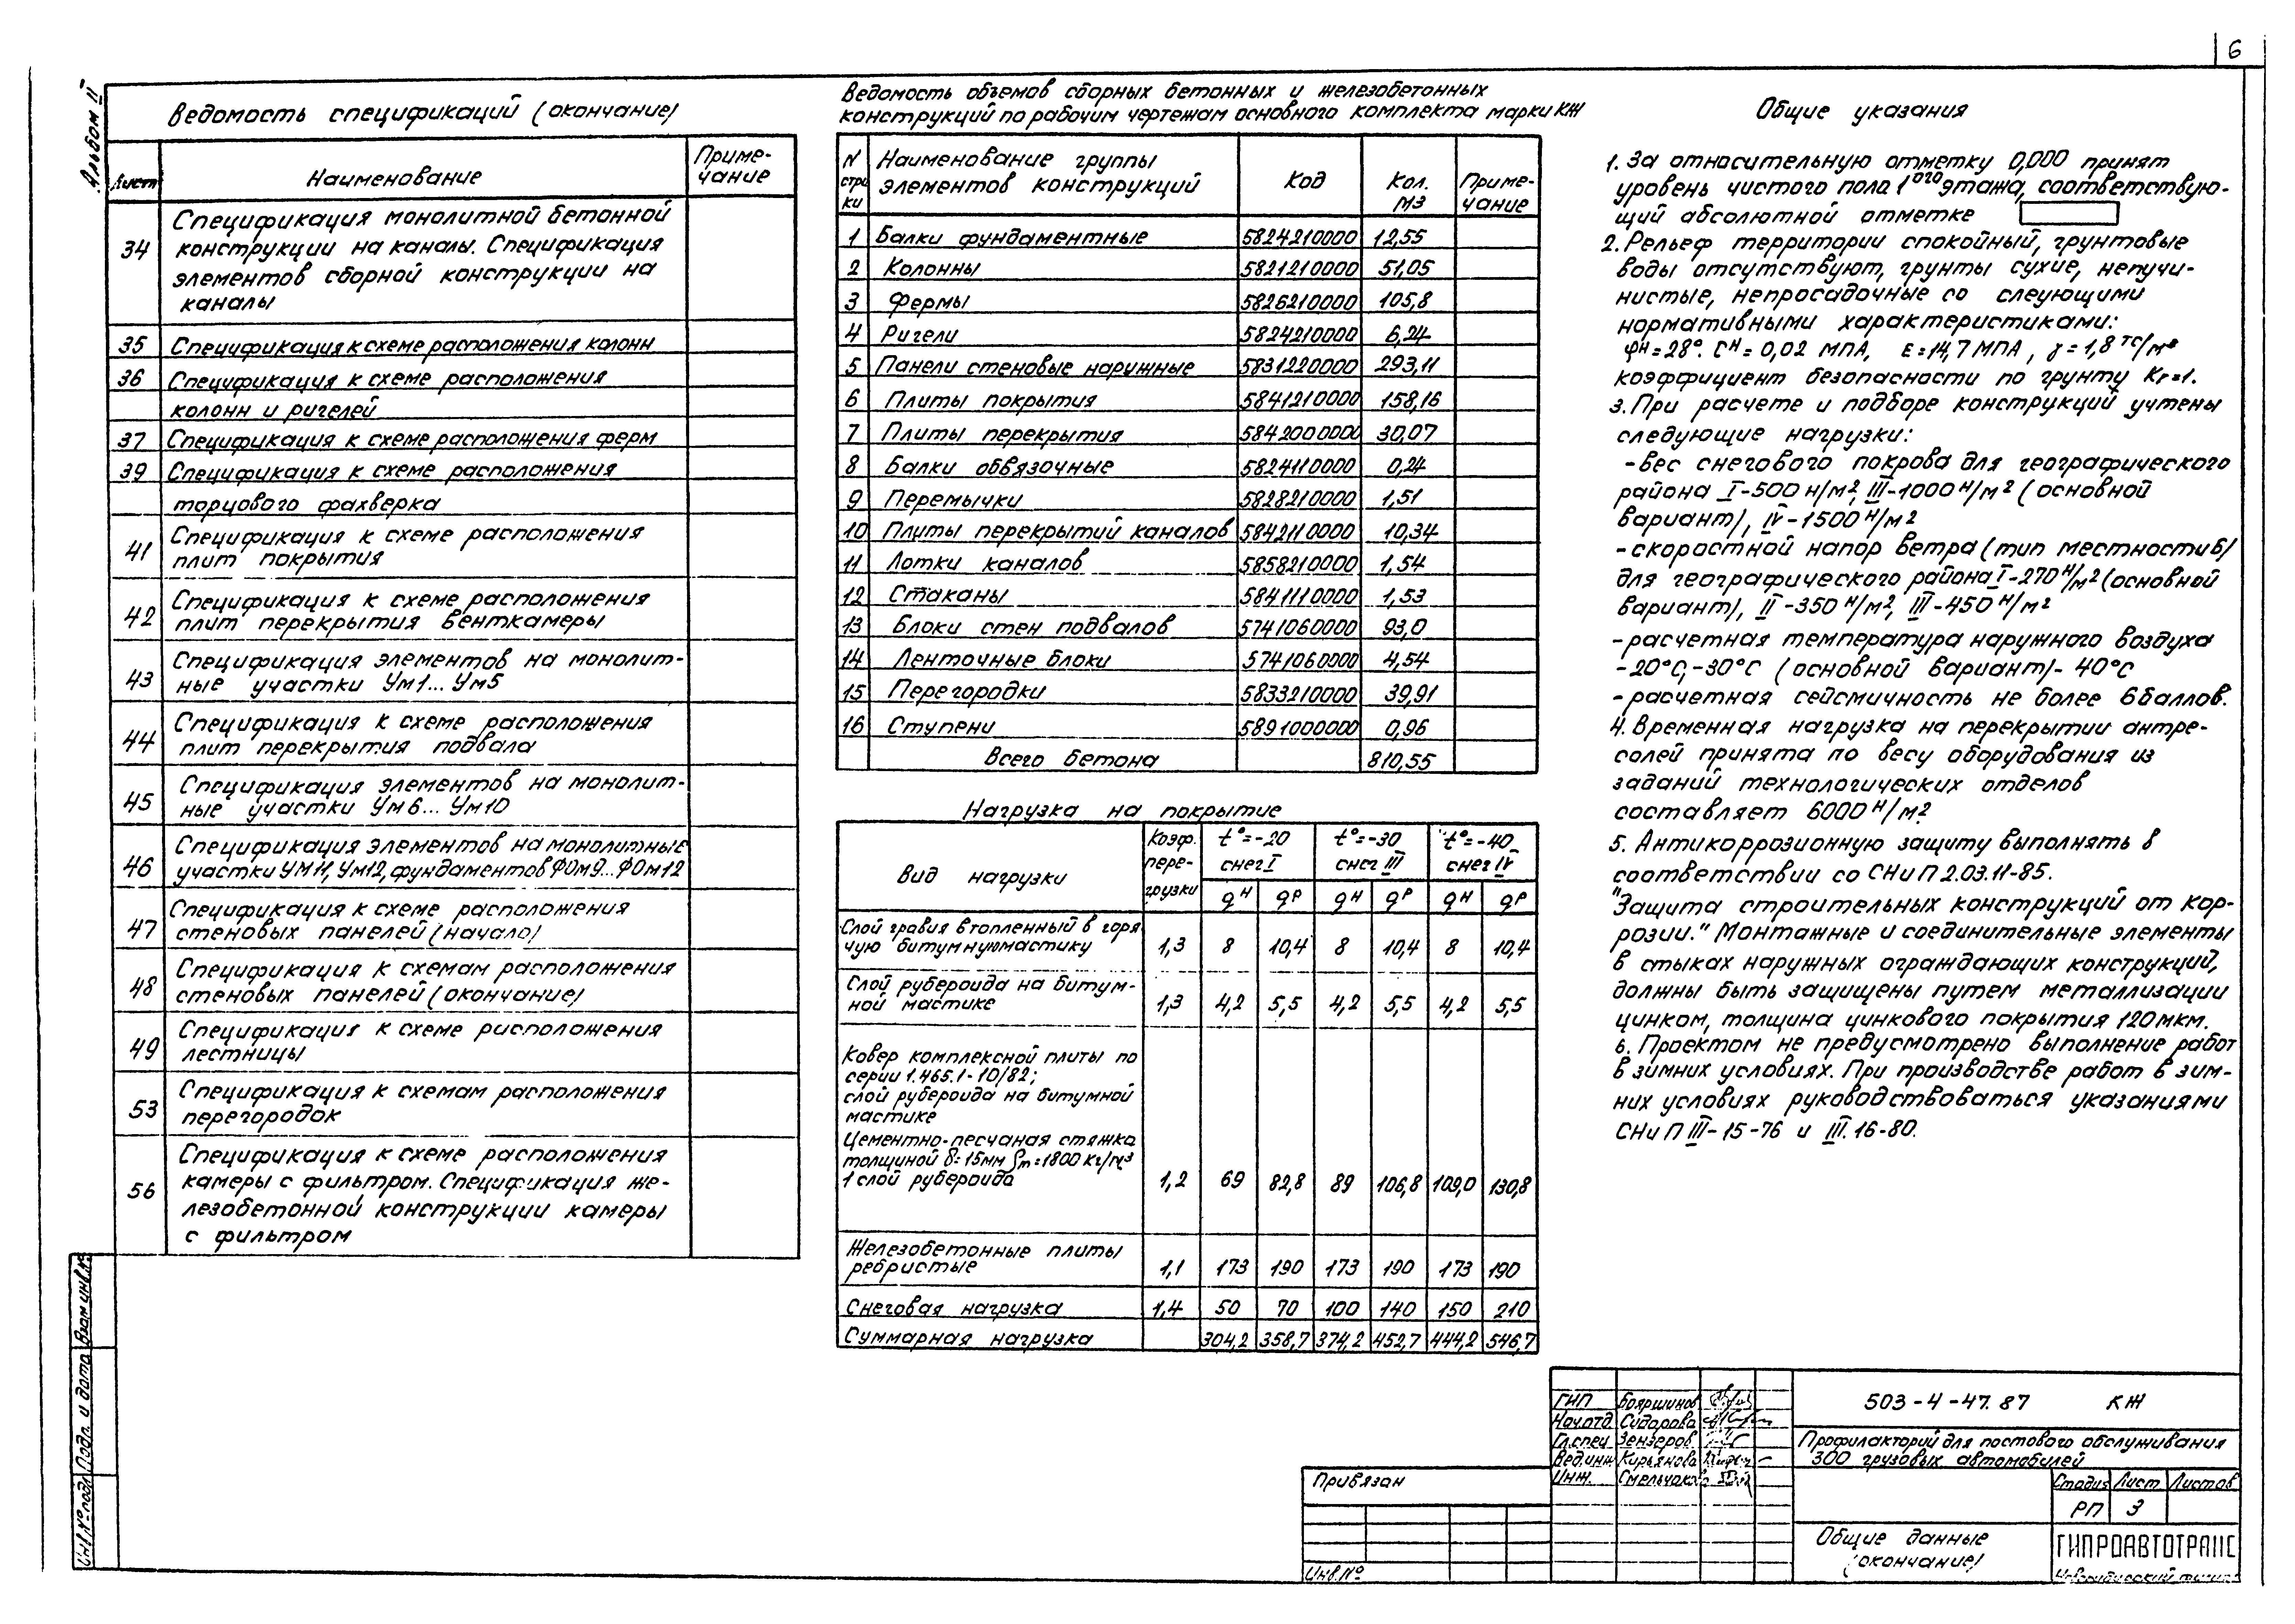 6
Альбом II
Ведомость спецификаций (окончание)
Лист
Наименование
Приме-
чание
34
Спецификация монолитной бетонной
конструкции на каналы. Спецификация
элементов сборной конструкции на
каналы
35 Спецификация к схеме расположения колонн
36 Спецификация к схеме расположения
колонн и ригелей
37 Спецификация к схеме расположения ферм
39 Спецификация к схеме расположения
торцового фахверка
41
Спецификация к схеме расположения
плит покрытия
42
Спецификация к схеме расположения
плит перекрытия венткамеры
43
Спецификация элементов на монолит-
ные участки Ум1... Ум5
44
Спецификация к схеме расположения
плит перекрытия подвала
45
Спецификация элементов на монолит-
ные участки Ум6... Ум10
46
Спецификация элементов на монолитные
участки УМ11, Ум12, фундаментов ФОм9... ФОм12
47
Спецификация к схеме расположения
стеновых панелей (начало)
48
Спецификация к схемам расположения
стеновых панелей (окончание)
49
Спецификация к схеме расположения
лестницы
53
Спецификация к схемам расположения
перегородок
56
Спецификация к схеме расположения
камеры с фильтром. Спецификация же-
лезобетонной конструкции камеры
с фильтром
Ведомость объемов сборных бетонных и железобетонных
конструкций по рабочим чертежам основного комплекта марки КЖ
N
стро
ки
Наименование группы
элементов конструкций
Код
Кол.
м3
Приме-
чание
1 Балки фундаментные 5824210000 12,55
2 Колонны 5821210000 51,05
3 Фермы 5826210000 105,8
4 Ригели 5824210000 6,24
5 Панели стеновые наружные 5831220000 293,11
6 Плиты покрытия 5841210000 158,16
7 Плиты перекрытия 5842000000 30,07
8 Балки обвязочные 5824110000 0,24
9 Перемычки 5828210000 1,51
10 Плиты перекрытий каналов 5842110000 10,34
11 Лотки каналов 5858210000 1,54
12 Стаканы 5841110000 1,53
13 Блоки стен подвалов 5741060000 93,0
14 Ленточные блоки 5741060000 4,54
15 Перегородки 5833210000 39,91
16 Ступени 5891000000 0,96
Всего бетона 810,55
Нагрузка на покрытие
Вид нагрузки
Коэф.
пере-
грузки
t°=-20
снег I
t°=-30
снег III
t°=-40
снег IV
qн qр qн qр qн qр
Слой гравия втопленный в горя
чую битумную мастику 1,3 8 10,4 8 10,4 8 10,4
Слой рубероида на битум-
ной мастике 1,3 4,2 5,5 4,2 5,5 4,2 5,5
Ковер комплексной плиты по
серии 1.465.1-10/82;
слой рубероида на битумной
мастике
Цементно-песчаная стяжка
толщиной δ=15мм ρm=1800 кг/м3
1 слой рубероида 1,2 69 82,8 89 106,8 109,0 130,8
Железобетонные плиты
ребристые 1,1 173 190 173 190 173 190
Снеговая нагрузка 1,4 50 70 100 140 150 210
Суммарная нагрузка 304,2 358,7 374,2 452,7 444,2 546,7
Общие указания
1. За относительную отметку 0,000 принят
уровень чистого пола 1ого этажа, соответствую-
щий абсолютной отметке
2. Рельеф территории спокойный, грунтовые
воды отсутствуют, грунты сухие, непучи-
нистые, непросадочные со слеующими
нормативными характеристиками:
φн=28°. Сн=0,02 МПА, E=14,7 МПА, γ=1,8 тс/м3
коэффициент безопасности по грунту Кг=1.
3. При расчете и подборе конструкций учтены
следующие нагрузки:
-вес снегового покрова для географического
района I-500 н/м2, III-1000 н/м2 (основной
вариант), IV-1500 н/м2
-скоростной напор ветра (тип местности Б)
для географического района I-270 н/м2 (основной
вариант), II-350 н/м2, III-450 н/м2
-расчетная температура наружного воздуха
-20°С,-30°С (основной вариант)-40°С
-расчетная сейсмичность не более 6 баллов.
4. Временная нагрузка на перекрытии антре-
солей принята по весу оборудования из
заданий технологических отделов
составляет 6000 н/м2.
5. Антикоррозионную защиту выполнять в
соответствии со СНиП 2.03.11-85.
"Защита строительных конструкций от кор-
розии." Монтажные и соединительные элементы
в стыках наружных ограждающих конструкций,
должны быть защищены путем металлизации
цинком, толщина цинкового покрытия 120 мкм.
6. Проектом не предусмотрено выполнение работ
в зимних условиях. При производстве работ в зим-
них условиях руководствоваться указаниями
СНиП III-15-76 и III.16-80.
Инв.№подл Подп. и дата Взам инв.№
Привязан
Инв.№
ГИП Бояршинов
Нач.отд. Сидорова
Гл.спец Зензеров
Вед.инж Кирьянова
Инж. Смельчаков
503-4-47.87 КЖ
Профилакторий для постового обслуживания
300 грузовых автомобилей
Стадия Лист Листов
РП 3
Общие данные
(окончание)
ГИПРОАВТОТРАНС